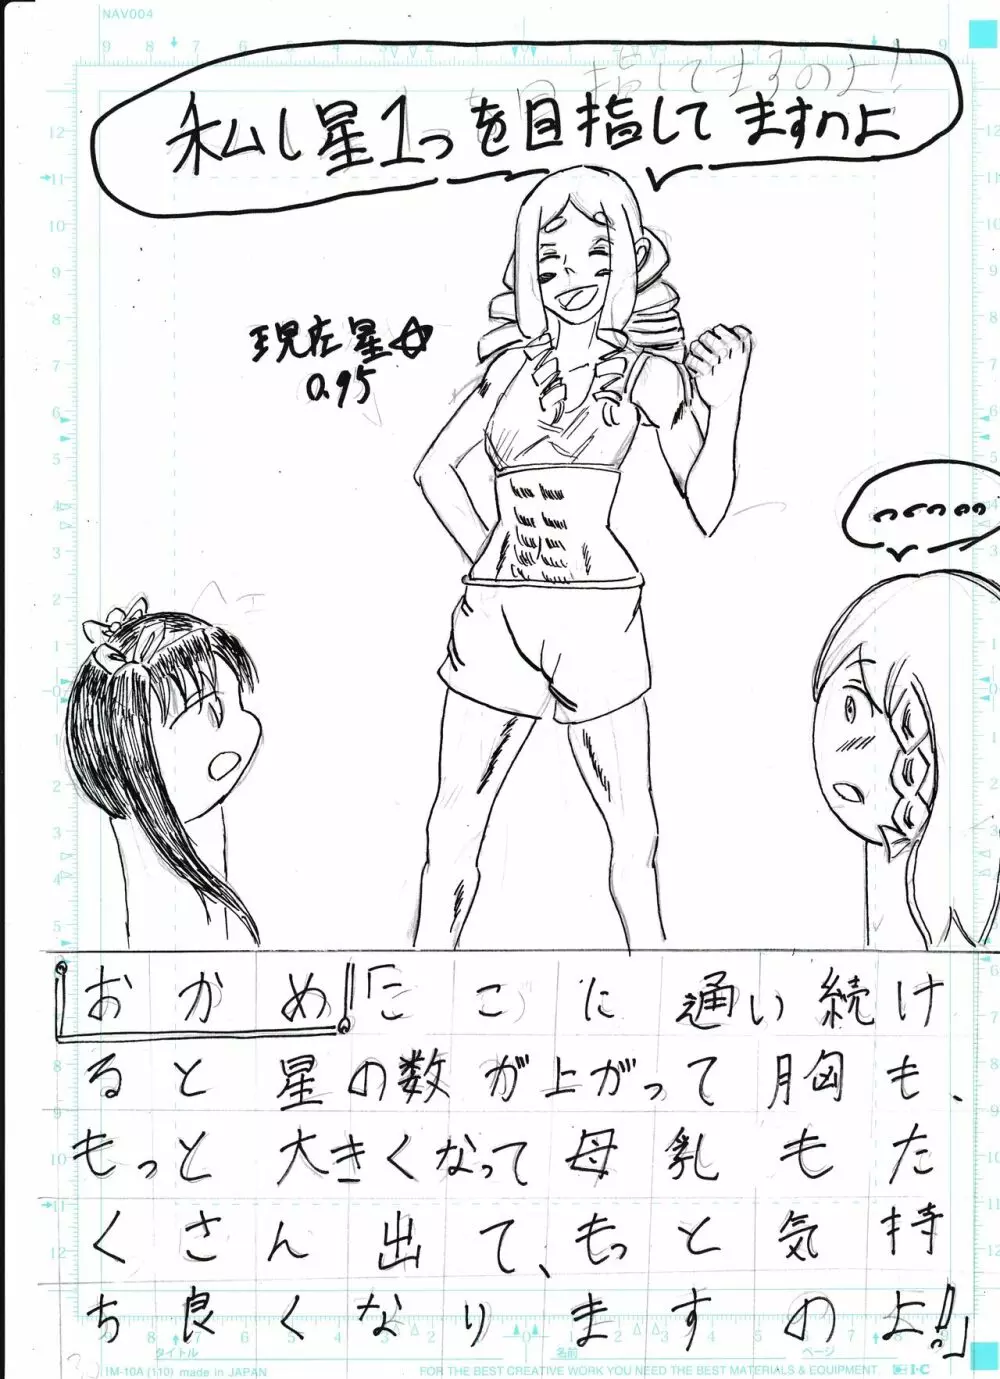 NAV004
私し星1つを目指してますのよ
現在星☆
0.95
・・・・・
おかめ「ここに通い続け
ると星の数が上がって胸も、
もっと大きくなって母乳もた
くさん出て、もっと気持
ち良くなりますのよ!!」
タイトル
名前
ページ
IM-10A (110) made in JAPAN
FOR THE BEST CREATIVE WORK YOU NEED THE BEST MATERIALS & EQUIPMENT
I·C